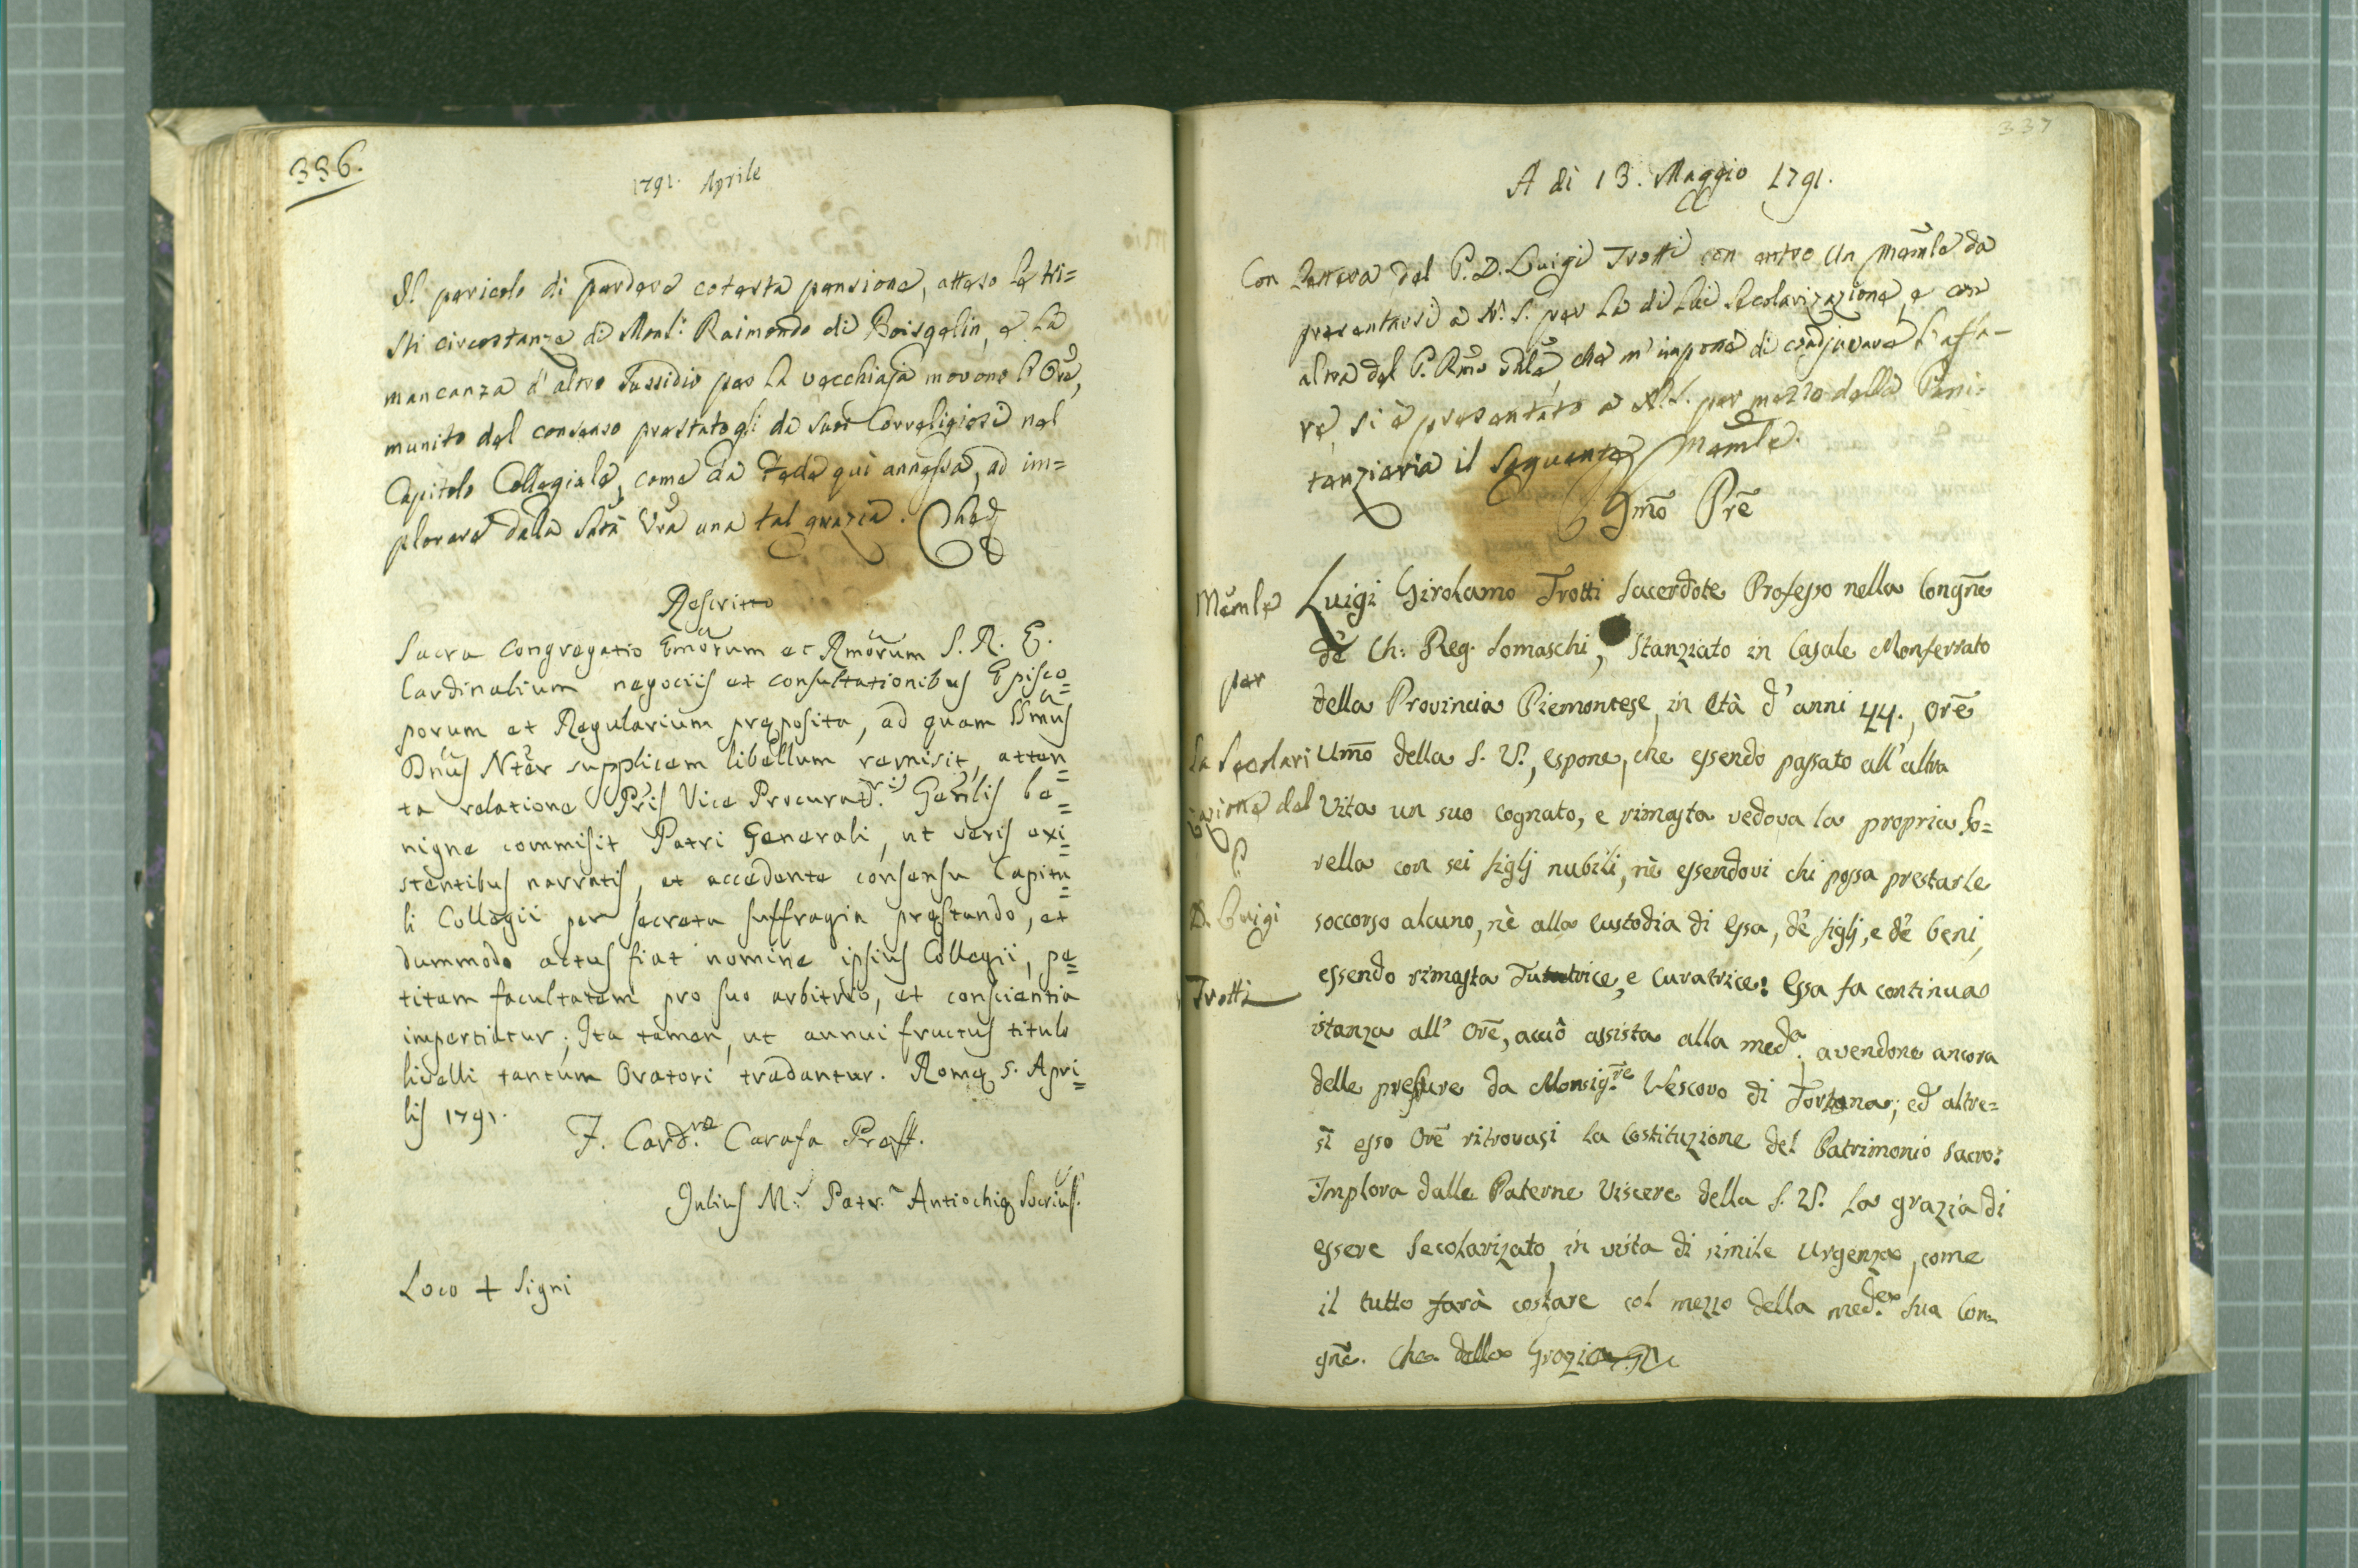 336.
1791. Aprile
Il pericolo di perdere cotesta pensione, atteso le tri=
sti circostanze di Monsi: Raimondo di Boisgelin, e la
mancanza d'altro sussidio per la vecchiaja movono l'Ore,
munito del consenso prestatogli da suoi Correligiosi nel
Capitolo Collegiale, come da Fede quì annessa, ad im=
plorare dalla Satà Vra una tal grazia. Che
Rescritto
Sacra Congregatio Emorum et Rmorum S. R. E.
Cardinalium negociis et consultationibus Episco=
porum et Regularium pręposita, ad quam SSmus
Dnus Nter supplicem libellum remisit, atten=
ta relatione Pris Vice Procurat.ris Genlis be=
nigne commisit Patri Generali, ut veris exi=
stentibus narratis, et accedente consensu Capitu=
li Collegii per secreta suffragia pręstando, et
dummodo actus fiat nomine ipsius Collegii, pe=
titam facultatem pro suo arbitrio, et conscientia
impertiatur; Ita tamen, ut annui fructus titulo
livelli tantum Oratori tradantur. Romę 5. Apri=
lis 1791.
F. Card. Carafa Praeff.
Julius M: Patr. Antiochię Secrius.
Loco + Signi
337
A di 13. Maggio 1791.
Con Lettera del P. D. Luigi Trotti con entro un Memle da
presentarsi a N. S. per la di lui secolarizazione, e con
altra del P. Rmo Gnle, che m'impone di coadjuvare l'affa-
re, si è presentato a N. S. per mezzo della Peni-
tenzieria il seguente Memle.
Bmo Pre
Memle
per
la secolari
zazione del
P.
D. Luigi
Trotti
Luigi Girolamo Trotti Sacerdote Professo nella Congne
dè Ch: Reg. Somaschi, stanziato in Casale Monferrato
della Provincia Piemontese, in età d'anni 44., Ore
Umo della S. V., espone, che essendo passato all'altra
Vita un suo cognato, e rimasta vedova la propria So=
rella con sei figlj nubili, nè essendovi chi possa prestarle
soccorso alcuno, nè alla custodia di Essa, dè figlj, e dè beni,
essendo rimasta Tutatrice, e curatrice: Essa fa continua
istanza all'Ore, acciò assista alla meda. avendone ancora
delle pressure da Monsig.re Vescovo di Tortona; ed altre=
sì esso Ore ritrovasi la Costituzione del Patrimonio Sacro:
Implora dalle Paterne Viscere della S. V. la grazia di
essere secolarizato, in vista di simile urgenza, come
il tutto farà costare col mezzo della med.ea sua Con-
gne. Che della Grazia